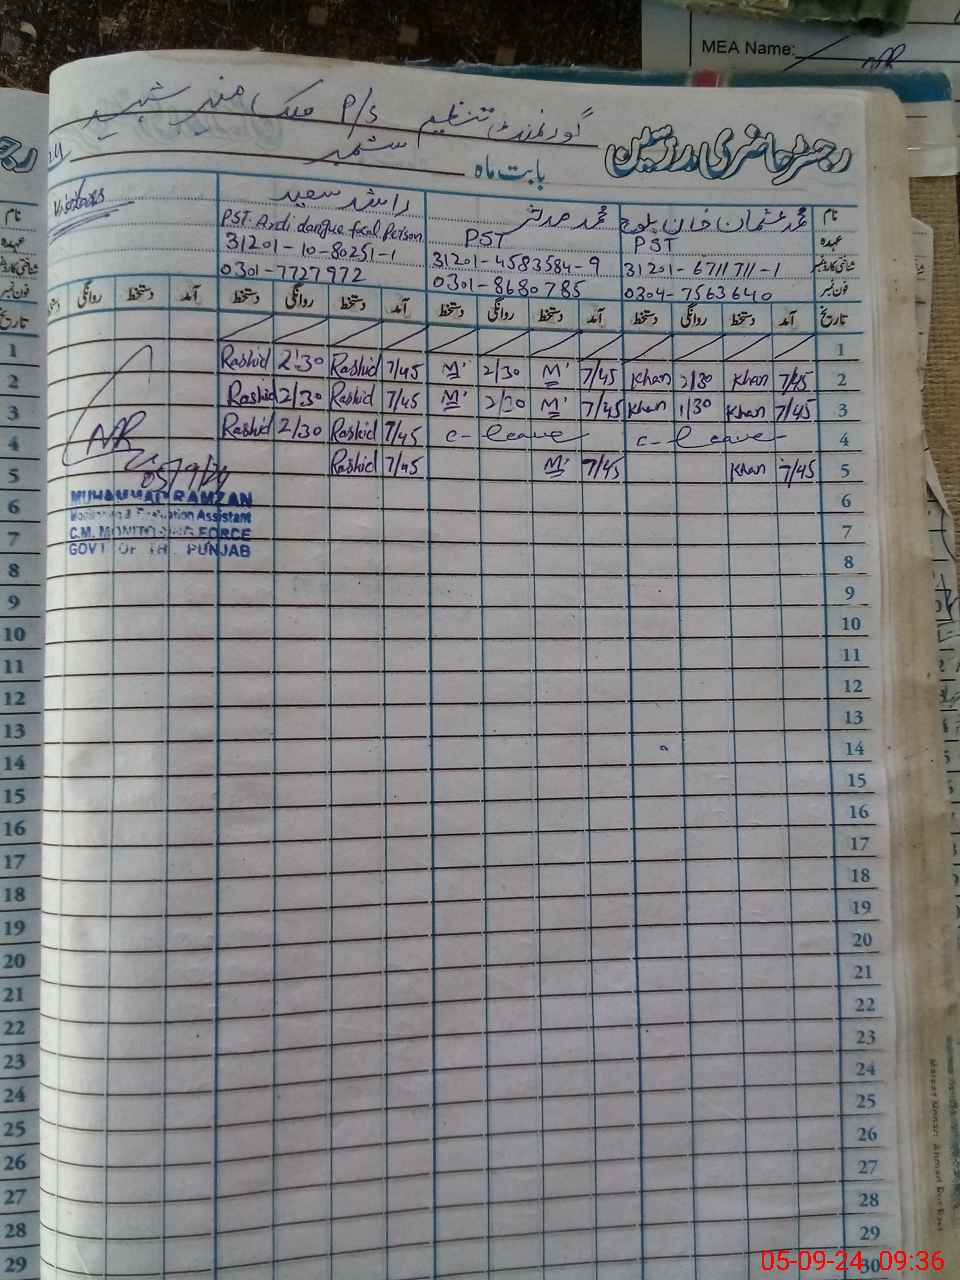 MEA Name:
گورنمنٹ تنظیم P/S ملک منیر شہید
رجسٹر حاضری مدرسین
بابت ماہ ستمبر
نام محمد عثمان خان بلوچ محمد مدثر راشد سعید Visitors
عہدہ PST PST PST Andi dangue focal Person
شناختی کارڈ نمبر 31201-6711711-1 31201-4583584-9 31201-10-80251-1
فون نمبر 0304-7563640 0301-8680785 0301-7727972
تاریخ آمد دستخط روانگی دستخط آمد دستخط روانگی دستخط آمد دستخط روانگی دستخط آمد دستخط روانگی دستخط
1
Rashid 2:30 Rashid 7/45 M 2/30 M 7/45 Khan 2/30 Khan 7/45 2
Rashid 2/30 Rashid 7/45 M 2/30 M 7/45 Khan 1/30 Khan 7/45 3
Rashid 2/30 Rashid 7/45 c-leave c-leave 4
Rashid 7/45 M 7/45 Khan 7/45 5
MR
05/9/24
MUHAMMAD RAMZAN
Monitoring & Evaluation Assistant
C.M. MONITORING FORCE
GOVT OF THE PUNJAB
6
7
8
9
10
11
12
13
14
15
16
17
18
19
20
21
22
23
24
25
26
27
28
29
30
05-09-24 09:36